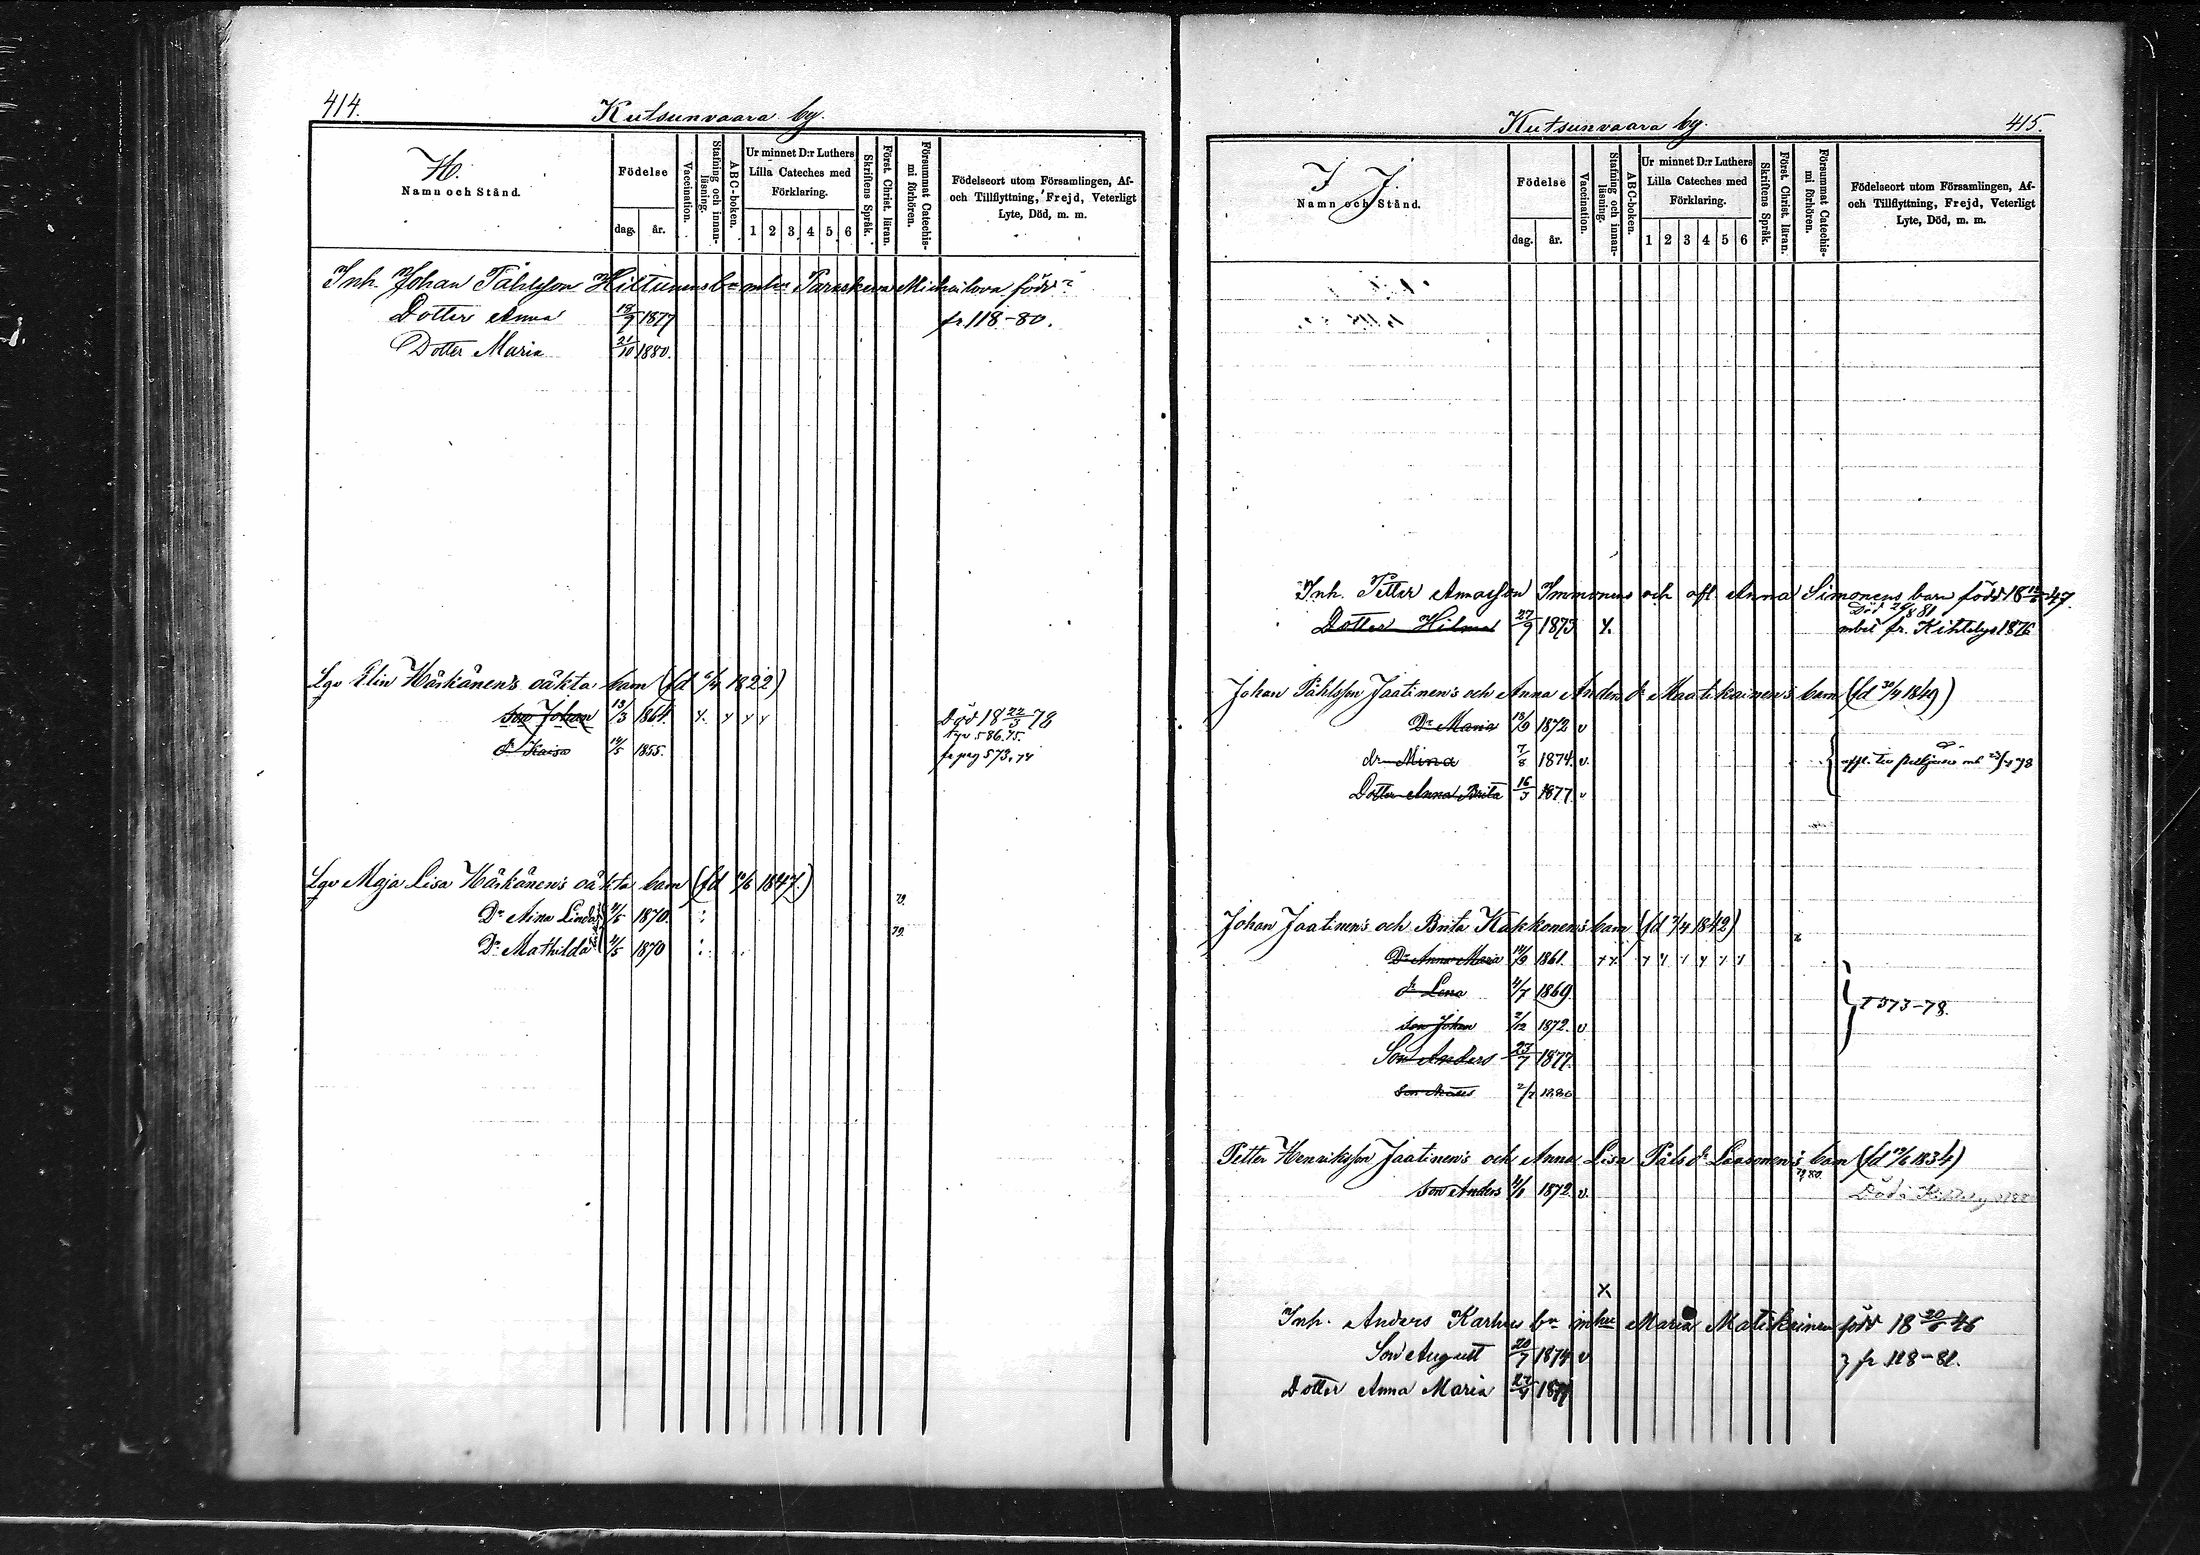 414.
Kutsunvaara by.
H.
Namn och Stånd.
Födelse
dag.
år.
Vaccination.
Stafning och innanläsning.
ABC-boken.
Ur minnet D:r Luthers
Lilla Cateches med
Förklaring.
1 2 3 4 5 6
Skriftens Språk.
Först. Christ. läran.
Försummat Catechismi förhören.
Födelseort utom Församlingen, Af-
och Tillflyttning, Frejd, Veterligt
Lyte, Död, m. m.
Inh. Johan Påhlsson Hiltunens bn m hu Paraskeva Michailova född
Dotter Anna 1877 fr 118-80.
Dotter Maria 21/10 1880.
Lgv Elin Härkänen's oäkta barn (fd 6/4 1822)
son Johan 13/3 1864 Död 18 22/3 78
586.75.
dr Kaisa 14/5 1855. fr pag 573.74
Lgv Maja Lisa Härkänen's oäkta barn (fd 10/6 1847.)
Dr Aina Linda 4/5 1870. 79.
Dr Mathilda 4/5 1870 79.
Kutsunvaara by. 415.
I J.
Namn och Stånd.
Födelse
dag.
år.
Vaccination.
Stafning och innanläsning.
ABC-boken.
Ur minnet D:r Luthers
Lilla Cateches med
Förklaring.
1 2 3 4 5 6
Skriftens Språk.
Först. Christ. läran.
Försummat Catechismi förhören.
Födelseort utom Församlingen, Af-
och Tillflyttning, Frejd, Veterligt
Lyte, Död, m. m.
Inh. Petter Immonens och afl Anna Simonens barn född 18 47.
Död 81
Dotter Hilma 27/9 1873 fr. Kihtelys 1876
Johan Påhlsson Jaatinen's och Anna Anders dr Maatikainen's barn (fd 30/4 1849)
Dr Maria 13/9 1872 v
dr Mina 7/8 1874. v. 78
Dotter Anna Brita 16/3 1877 v
Johan Jaatinen's och Brita Kakkonen's barn (fd 7/4 1842)
Dr Anna Maria 14/9 1861.
dr Lena 4/7 1869 573-78.
son Johan 2/12 1872. v
Son Anders 23/7 1877.
son 2/7 1880
Petter Henriksson Jaatinen's och Anna Lisa Påls dr Laasonen's barn (fd 13/6 1834)
79 80.
son Anders 4/8 1872. v. Död i
X
Inh. Anders Karhu bn m hu Maria Matikainen född 18 20/6 46
Son August 20/7 1874 v fr 118-81.
Dotter Anna Maria